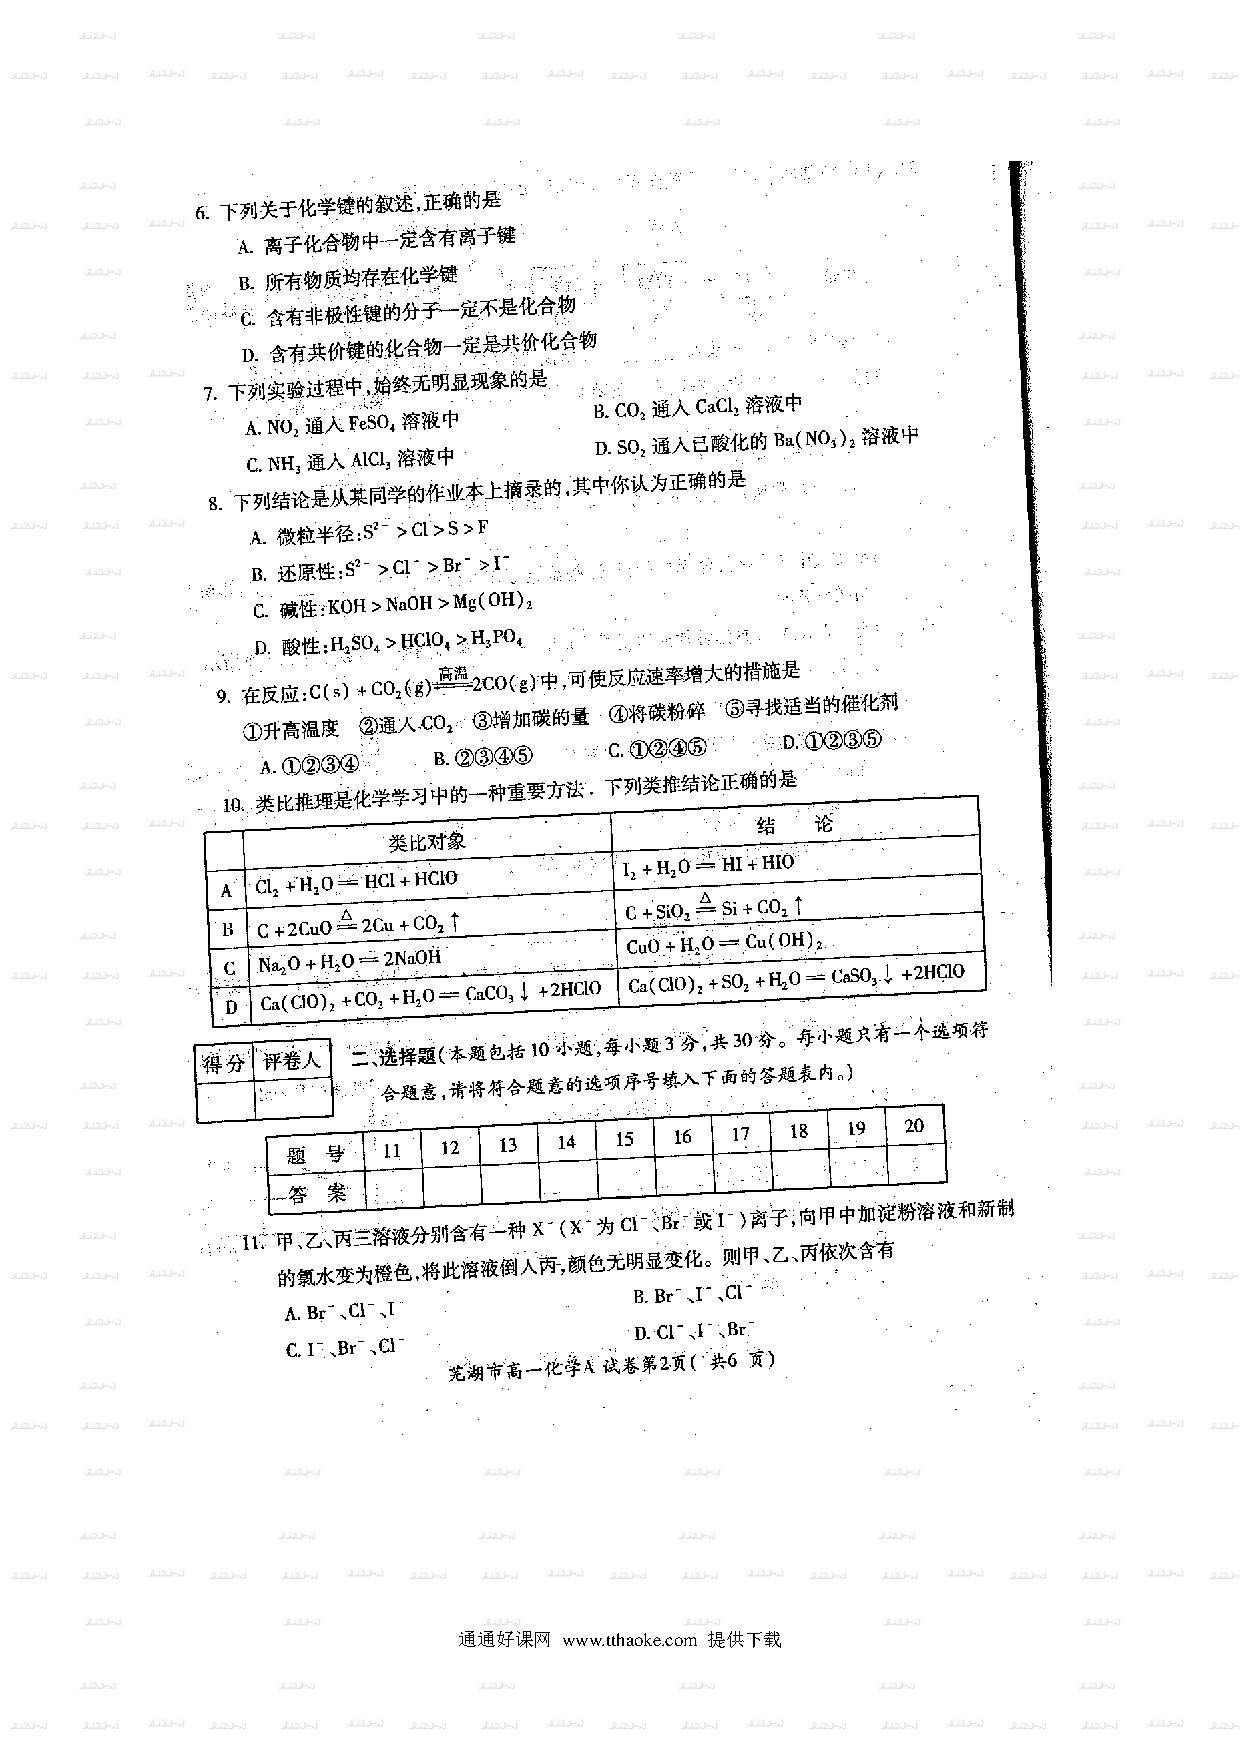 6. 下列关于化学键的叙述,正确的是
A. 离子化合物中一定含有离子键
B. 所有物质均存在化学键
C. 含有非极性键的分子一定不是化合物
D. 含有共价键的化合物一定是共价化合物
7. 下列实验过程中,始终无明显现象的是
A. NO₂ 通入 FeSO₄ 溶液中 B. CO₂ 通入 CaCl₂ 溶液中
C. NH₃ 通入 AlCl₃ 溶液中 D. SO₂ 通入已酸化的 Ba(NO₃)₂ 溶液中
8. 下列结论是从某同学的作业本上摘录的,其中你认为正确的是
A. 微粒半径:S²⁻ >Cl>S>F
B. 还原性:S²⁻ >Cl⁻ >Br⁻ >I⁻
C. 碱性:KOH>NaOH>Mg(OH)₂
D. 酸性:H₂SO₄>HClO₄>H₃PO₄
9. 在反应:C(s)+CO₂(g)══高温══2CO(g)中,可使反应速率增大的措施是
①升高温度 ②通入CO₂ ③增加碳的量 ④将碳粉碎 ⑤寻找适当的催化剂
A. ①②③④ B. ②③④⑤ C. ①②④⑤ D. ①②③⑤
10. 类比推理是化学学习中的一种重要方法. 下列类推结论正确的是
类比对象 结 论
A Cl₂+H₂O══HCl+HClO I₂+H₂O══HI+HIO
B C+2CuO══△══2Cu+CO₂↑ C+SiO₂══△══Si+CO₂↑
C Na₂O+H₂O══2NaOH CuO+H₂O══Cu(OH)₂
D Ca(ClO)₂+CO₂+H₂O══CaCO₃↓+2HClO Ca(ClO)₂+SO₂+H₂O══CaSO₃↓+2HClO
得分 评卷人 二、选择题(本题包括10小题,每小题3分,共30分。每小题只有一个选项符
合题意,请将符合题意的选项序号填入下面的答题表内。)
题 号 11 12 13 14 15 16 17 18 19 20
答 案
11. 甲、乙、丙三溶液分别含有一种 X⁻(X⁻为 Cl⁻、Br⁻或 I⁻)离子,向甲中加淀粉溶液和新制
的氯水变为橙色,将此溶液倒入丙,颜色无明显变化。则甲、乙、丙依次含有
A. Br⁻、Cl⁻、I⁻ B. Br⁻、I⁻、Cl⁻
C. I⁻、Br⁻、Cl⁻ D. Cl⁻、I⁻、Br⁻
芜湖市高一化学A 试卷第2页( 共6 页)
通通好课网 www.tthaoke.com 提供下载